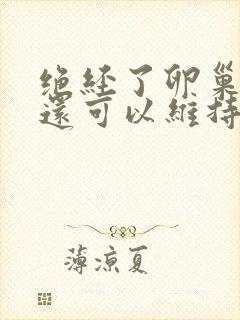 绝经了卵巢
還可以維持
薄涼夏